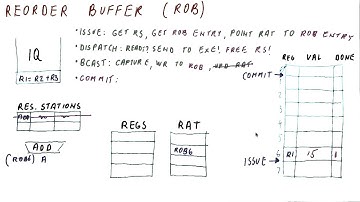 REORDER BUFFER (ROB)
IQ
R1=R2+R3
• ISSUE: GET RS, GET ROB ENTRY, POINT RAT TO ROB ENTRY
• DISPATCH: READY? SEND TO EXE!, FREE RS!
• BCAST: CAPTURE, WR TO ROB,
• COMMIT:
REG VAL DONE
COMMIT
ISSUE
6 R1 15 1
7
RES. STATIONS
ADD
ADD
(ROB6) A
REGS
RAT
ROB6